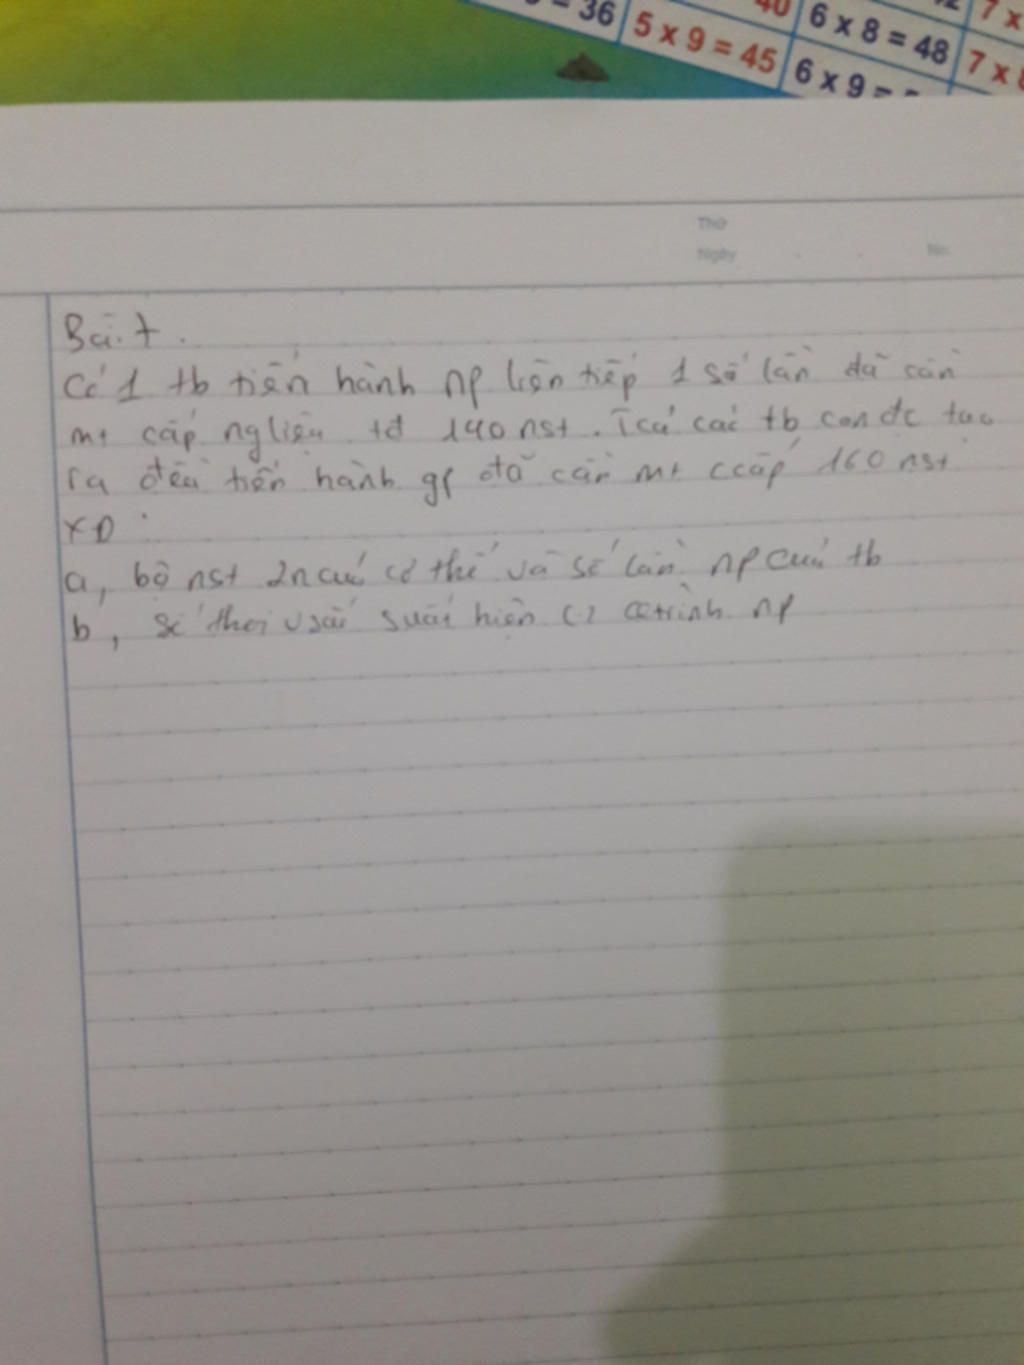 = 36
5 x 9 = 45
40
6 x 8 = 48
6 x 9 =
7 x
7 x 8
Thứ
Ngày
No
Bài 7.
Có 1 tb tiến hành np liên tiếp 1 số lần đã cần
mt cấp ngliệu tđ 140 nst. Tcả các tb con đc tạo
ra đều tiến hành gp đã cần mt ccấp 160 nst
XĐ:
a, bộ nst 2n của cơ thể và số lần np của tb
b, số thoi vsắc suất hiện qtrình np